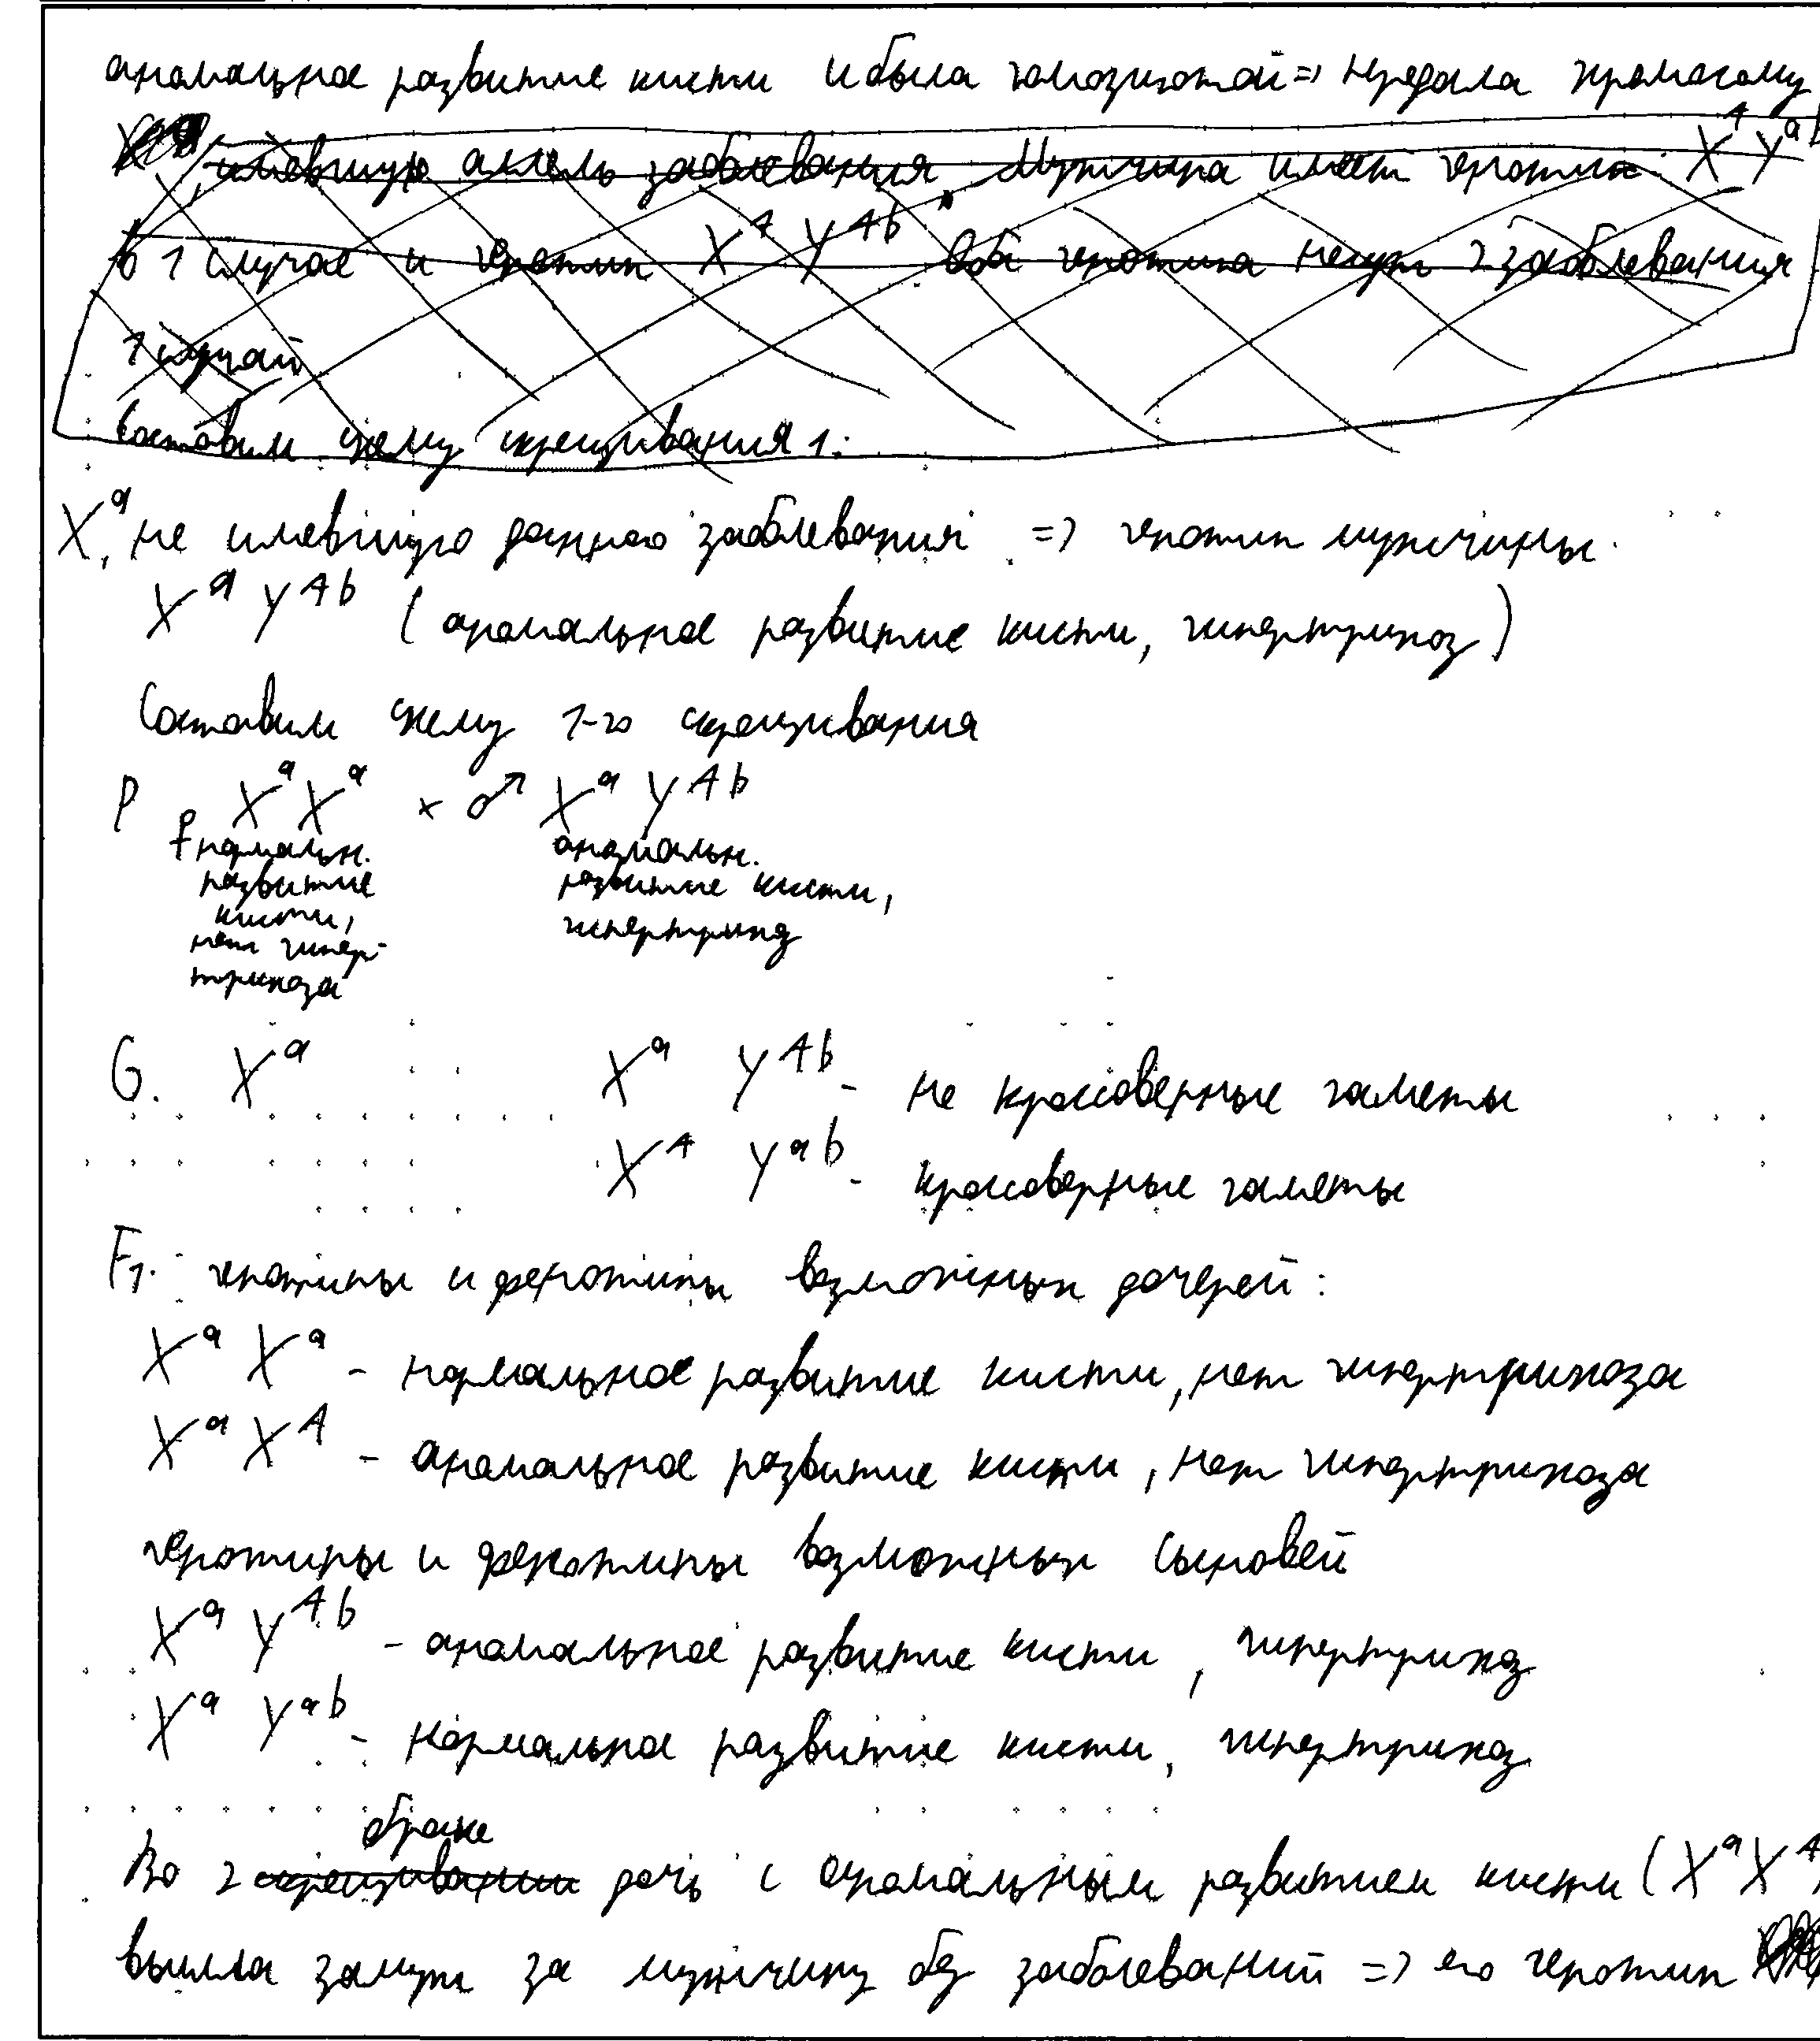 аномальное развитие кисти и была гомозиготой => передала
X, имевшую аллель заболевания. Мужчина имеет генотип X^A Y^ab
в 1 случае и генотип X^A Y^Ab. Оба генотипа несут 2 заболевания
1 случай
Составим схему скрещивания 1:
X^a, не имевшую данного заболевания => генотип мужчины.
X^a Y^Ab (аномальное развитие кисти, гипертрихоз)
Составим схему 1-го скрещивания
P ♀ X^a X^a × ♂ X^a Y^Ab
нормальн. аномальн.
развитие развитие кисти,
кисти, гипертрихоз
нет гипер-
трихоза
G. X^a X^a Y^Ab - не кроссоверные гаметы
X^A Y^ab - кроссоверные гаметы
F1: генотипы и фенотипы возможных дочерей:
X^a X^a - нормальное развитие кисти, нет гипертрихоза
X^a X^A - аномальное развитие кисти, нет гипертрихоза
генотипы и фенотипы возможных сыновей
X^a Y^Ab - аномальное развитие кисти, гипертрихоз
X^a Y^ab - нормальное развитие кисти, гипертрихоз
браке
Во 2 скрещивании дочь с аномальным развитием кисти (X^a X^A
вышла замуж за мужчину без заболеваний => его генотип